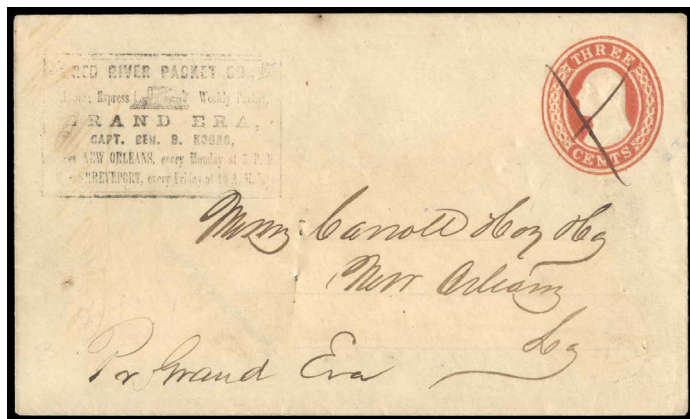 RED RIVER PACKET CO.,
Express Weekly Packet,
GRAND ERA,
CAPT. BEN. B.
NEW ORLEANS, every Monday at 5 P. M.
SHREVEPORT, every Friday at 10 A. M.
THREE
CENTS
Messrs Carroll Hoy &Co
New Orleans
La
Pr Grand Era